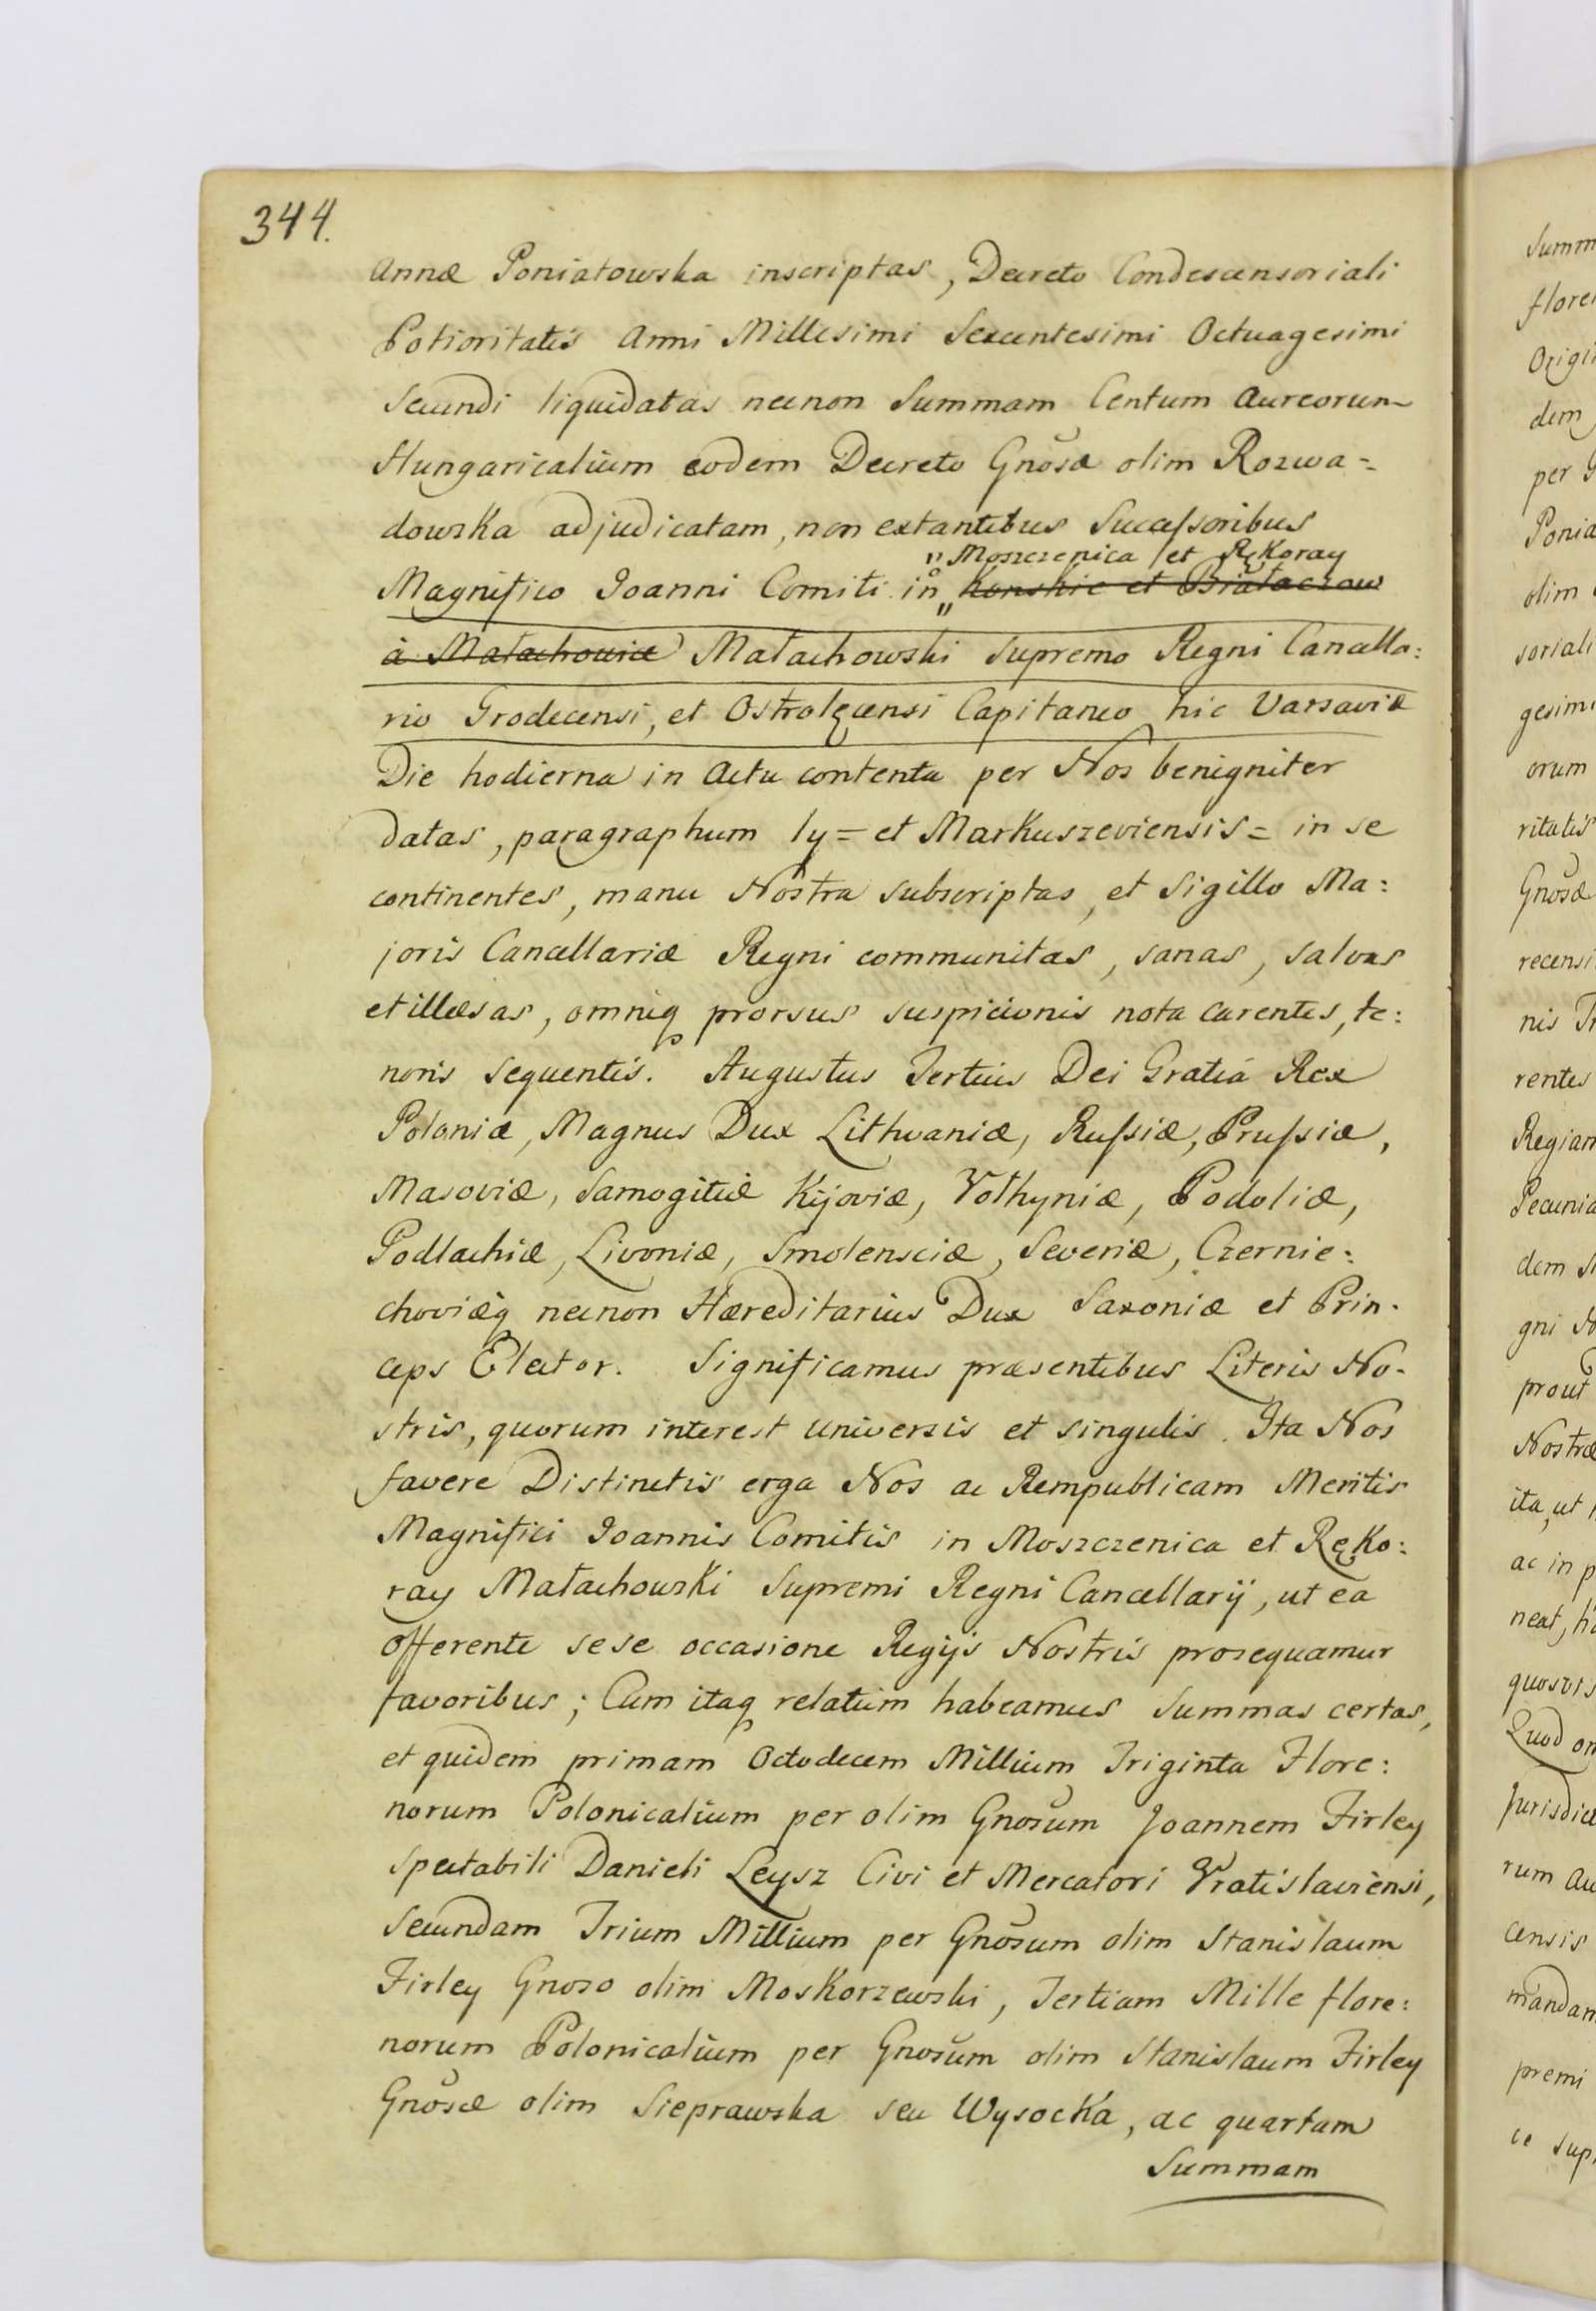 344.
Annæ Poniatowska inscriptas, Decreto Condescensoriali
Potioritatis Anni Millesimi Sexcentesimi Octuagesimi
Secundi liquidatas necnon Summam Centum Aureorum
Hungaricalium eodem Decreto Gnosæ olim Rozwa=
dowska adjudicatam, non extantibus Successoribus
" Moszczenica et Rękoray
Magnifico Joanni Comiti in " Konskie et Białaczow
à Małachowice Małachowski Supremo Regni Cancella:
rio Grodecensi, et Ostrołęcensi Capitaneo hic Varsaviæ
Die hodierna in Actu contenta per Nos benigniter
datas, paragraphum ly = et Markuszeviensis = in se
continentes, manu Nostra subscriptas, et Sigillo Ma:
joris Cancellariæ Regni communitas, sanas, salvas
et illæsas, omniq prorsus suspicionis nota carentes, te:
noris sequentis. Augustus Tertius Dei Gratiá Rex
Poloniæ, Magnus Dux Lithvaniæ, Russiæ, Prussiæ,
Masoviæ, Samogitiæ Kijoviæ, Volhyniæ, Podoliæ,
Podlachiæ, Livoniæ, Smolensciæ, Severiæ, Czernie:
choviæq necnon Hæreditarius Dux Saxoniæ et Prin.
ceps Elector. Significamus præsentibus Literis No.
stris, quorum interest universis et singulis. Ita Nos
favere Distinctis erga Nos ac Rempublicam Meritis
Magnifici Joannis Comitis in Moszczenica et Ręko:
ray Małachowski Supremi Regni Cancellarij, ut ea
offerente sese occasione Regijs Nostris prosequamur
favoribus; Cum itaq relatum habeamus Summas certas,
et quidem primam Octodecem Millium Triginta Flore:
norum Polonicalium per olim Gnosum Joannem Firley
Spectabili Danieli Leysz Civi et Mercatori Vratislaviensi,
Secundam Trium Millium per Gnosum olim Stanislaum
Firley Gnoso olim Moskorzewski, Tertiam Mille flore:
norum Polonicalium per Gnosum olim Stanislaum Firley
Gnosæ olim Sieprawska seu Wysocka, ac quartam
Summam